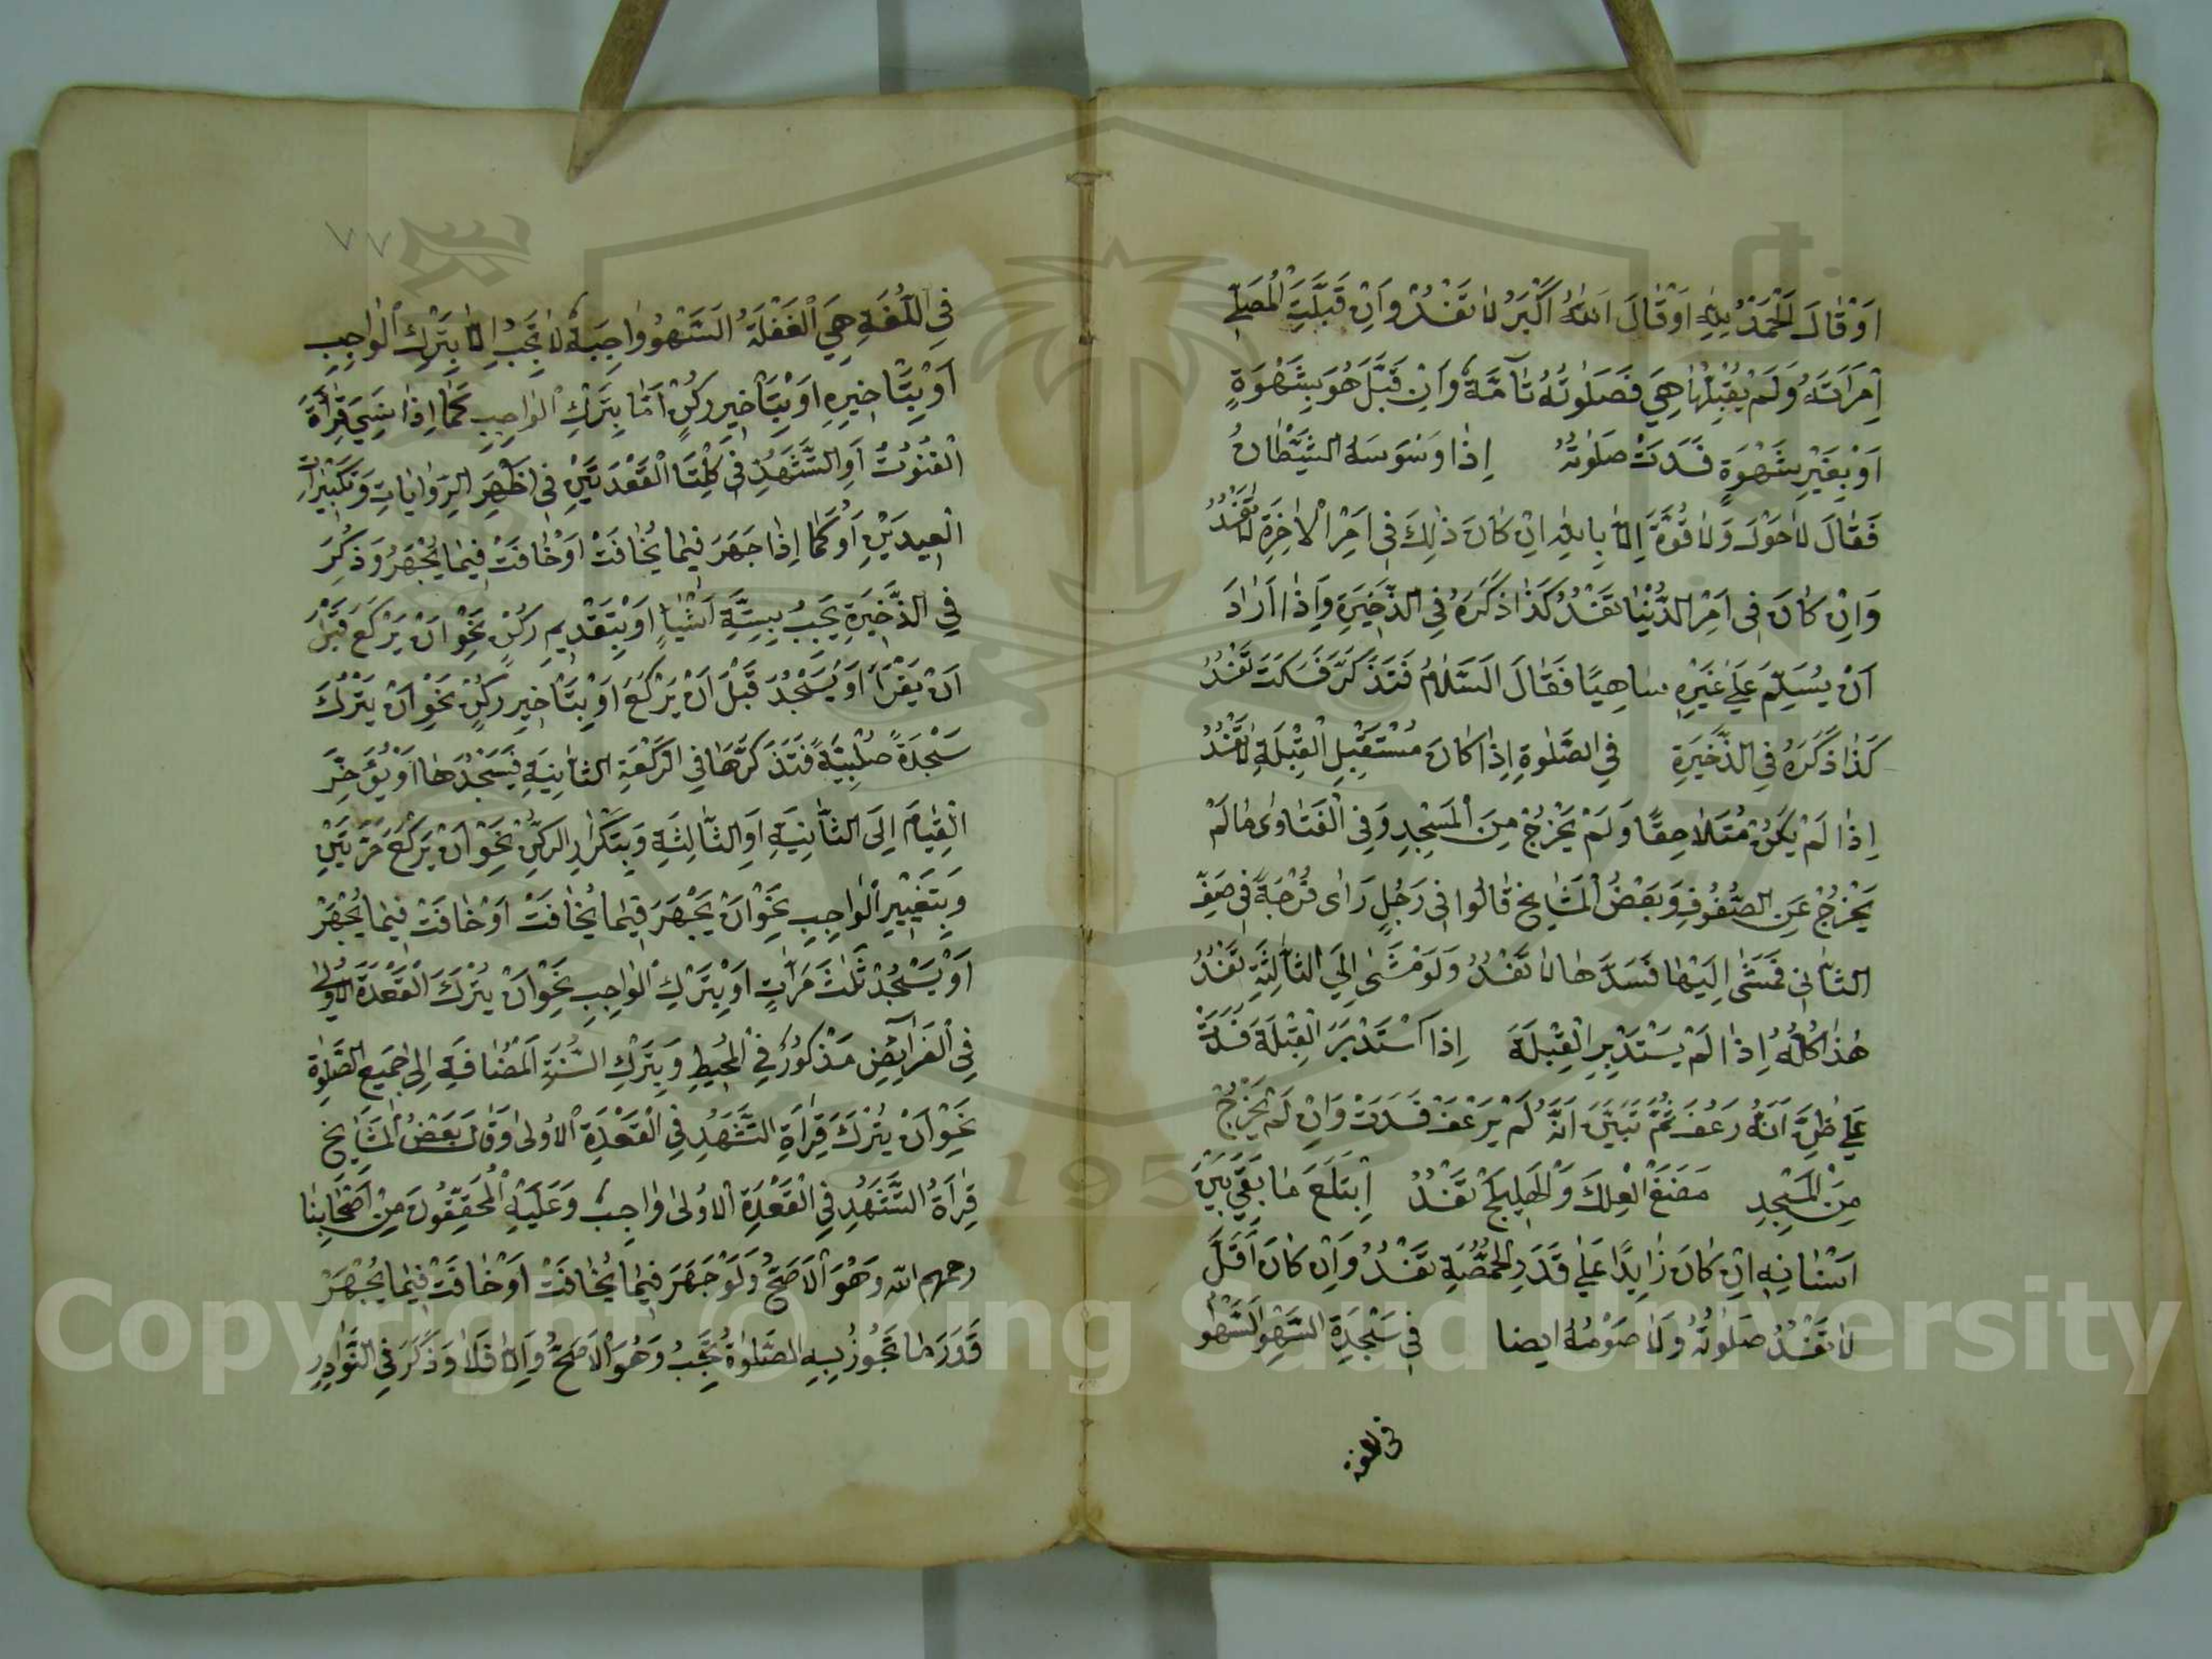 اَوْ قَالَ اَلْحَمْدُ لِلّٰهِ اَوْ قَالَ اَللّٰهُ اَكْبَرُ لَا تَفْسُدُ وَاِنْ قَبَّلَتِ الْمُصَلِّي
اِمْرَاَتُهُ وَلَمْ يُقَبِّلْهَا هِيَ فَصَلٰوتُهُ تَآمَّةٌ وَاِنْ قَبَّلَ هُوَ بِشَهْوَةٍ
اَوْ بِغَيْرِ شَهْوَةٍ فَسَدَتْ صَلٰوتُهُ اِذَا وَسْوَسَهُ الشَّيْطَانُ
فَقَالَ لَا حَوْلَ وَلَا قُوَّةَ اِلَّا بِاللّٰهِ اِنْ كَانَ ذٰلِكَ فِي اَمْرِ الْاٰخِرَةِ لَا تَفْسُدُ
وَاِنْ كَانَ فِي اَمْرِ الدُّنْيَا تَفْسُدُ كَذَا ذَكَرَهُ فِي الذَّخِيرَةِ وَاِذَا اَرَادَ
اَنْ يُسَلِّمَ عَلٰى غَيْرِهِ سَاهِيًا فَقَالَ اَلسَّلَامُ فَتَذَكَّرَ فَسَكَتَ تَفْسُدُ
كَذَا ذَكَرَهُ فِي الذَّخِيرَةِ فِي الصَّلٰوةِ اِذَا كَانَ مُسْتَقْبِلَ الْقِبْلَةِ لَا تَفْسُدُ
اِذَا لَمْ يَكُنْ مُتَلَاحِقًا وَلَمْ يَخْرُجْ مِنَ الْمَسْجِدِ وَفِي الْفَتَاوٰى مَا لَمْ
يَخْرُجْ عَنِ الصُّفُوفِ وَبَعْضُ الْمَشَايِخِ قَالُوا فِي رَجُلٍ رَاٰى فُرْجَةً فِي صَفِّ
الثَّانِي فَمَشٰى اِلَيْهَا فَسَدَّهَا لَا تَفْسُدُ وَلَوْ مَشٰى اِلَى الثَّالِثَةِ تَفْسُدُ
هٰذَا كُلُّهُ اِذَا لَمْ يَسْتَدْبِرِ الْقِبْلَةَ اِذَا اسْتَدْبَرَ الْقِبْلَةَ فَسَدَتْ
عَلٰى ظَنِّ اَنَّهُ رَعُفَ ثُمَّ تَبَيَّنَ اَنَّهُ لَمْ يَرْعَفْ فَسَدَتْ وَاِنْ لَمْ يَخْرُجْ
مِنَ الْمَسْجِدِ مَضَغَ الْعِلْكَ وَالْهَلِيلَجَ تَفْسُدُ اِبْتَلَعَ مَا بَقِيَ بَيْنَ
اَسْنَانِهِ اِنْ كَانَ زَايِدًا عَلٰى قَدَرِ الْحِمَّصَةِ تَفْسُدُ وَاِنْ كَانَ اَقَلَّ
لَا تَفْسُدُ صَلٰوتُهُ وَلَا صَوْمُهُ ايضا فِي سَجْدَةِ السَّهْوِ اَلسَّهْوُ
فى اللغة
٧٧
فِي اللُّغَةِ هِيَ الْغَفْلَةُ اَلسَّهْوُ وَاجِبَةٌ لَا يَجِبُ اِلَّا بِتَرْكِ الْوَاجِبِ
اَوْ بِتَاْخِيرِهِ اَوْ بِتَاْخِيرِ رُكْنٍ اَمَّا بِتَرْكِ الْوَاجِبِ كَمَا اِذَا نَسِيَ قِرَاءَةَ
الْقُنُوتِ اَوِ التَّشَهُّدِ فِي كِلْتَا الْقَعْدَتَيْنِ فِي اَظْهَرِ الرِّوَايَاتِ وَتَكْبِيرَاتِ
الْعِيدَيْنِ اَوْ كَمَا اِذَا جَهَرَ فِيمَا يُخَافَتُ اَوْ خَافَتَ فِيمَا يُجْهَرُ وَذُكِرَ
فِي الذَّخِيرَةِ يَجِبُ بِسِتَّةِ اَشْيَاءٍ اَوْ بِتَقْدِيمِ رُكْنٍ نَحْوِ اَنْ يَرْكَعَ قَبْلَ
اَنْ يَقْرَاَ اَوْ يَسْجُدَ قَبْلَ اَنْ يَرْكَعَ اَوْ بِتَاْخِيرِ رُكْنٍ نَحْوِ اَنْ يَتْرُكَ
سَجْدَةً صُلْبِيَّةً فَتَذَكَّرَهَا فِي الرَّكْعَةِ الثَّانِيَةِ فَيَسْجُدُهَا اَوْ يُؤَخِّرَ
الْقِيَامَ اِلَى الثَّانِيَةِ اَوِ الثَّالِثَةِ وَبِتَكْرَارِ الرُّكْنِ نَحْوِ اَنْ يَرْكَعَ مَرَّتَيْنِ
وَبِتَغْيِيرِ الْوَاجِبِ نَحْوِ اَنْ يَجْهَرَ فِيمَا يُخَافَتُ اَوْ خَافَتَ فِيمَا يُجْهَرُ
اَوْ يَسْجُدَ ثَلٰثَ مَرَّاتٍ اَوْ بِتَرْكِ الْوَاجِبِ نَحْوِ اَنْ يَتْرُكَ الْقَعْدَةَ الْاُولٰى
فِي الْفَرَآئِضِ مَذْكُورٌ فِي الْمُحِيطِ وَبِتَرْكِ السُّنَّةِ الْمُضَافَةِ اِلٰى جَمِيعِ الصَّلٰوةِ
نَحْوِ اَنْ يَتْرُكَ قِرَاءَةَ التَّشَهُّدِ فِي الْقَعْدَةِ الْاُولٰى وَقَالَ بَعْضُ الْمَشَايِخِ
قِرَاءَةُ التَّشَهُّدِ فِي الْقَعْدَةِ الْاُولٰى وَاجِبٌ وَعَلَيْهِ الْمُحَقِّقُونَ مِنْ اَصْحَابِنَا
رحمهم الله وَهُوَ الْاَصَحُّ وَلَوْ جَهَرَ فِيمَا يُخَافَتُ اَوْ خَافَتَ فِيمَا يُجْهَرُ
قَدَرَ مَا تَجُوزُ بِهِ الصَّلٰوةُ يَجِبُ وَهُوَ الْاَصَحُّ وَاِلَّا فَلَا وَذُكِرَ فِي النَّوَادِرِ
1957
Copyright © King Saud University